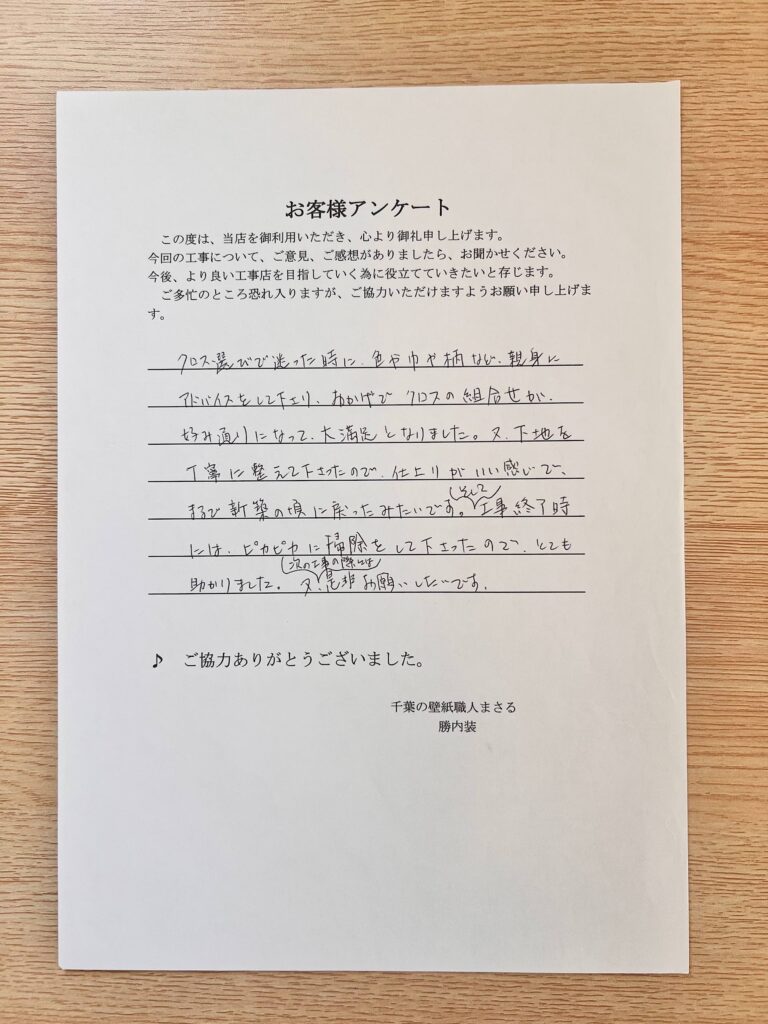 お客様アンケート
この度は、当店を御利用いただき、心より御礼申し上げます。
今回の工事について、ご意見、ご感想がありましたら、お聞かせください。
今後、より良い工事店を目指していく為に役立てていきたいと存じます。
ご多忙のところ恐れ入りますが、ご協力いただけますようお願い申し上げま
す。
クロス選びで迷った時に、色や巾や柄など、親身に
アドバイスをして下さり、おかげで クロスの組合せが、
好み通りになって、大満足となりました。又、下地を
丁寧に整えて下さったので、仕上りがいい感じで、
まるで新築の頃に戻ったみたいです。そして工事終了時
には、ピカピカに掃除をして下さったので、とても
助かりました。次の工事の際には又、是非お願いしたいです。
♪ ご協力ありがとうございました。
千葉の壁紙職人まさる
勝内装